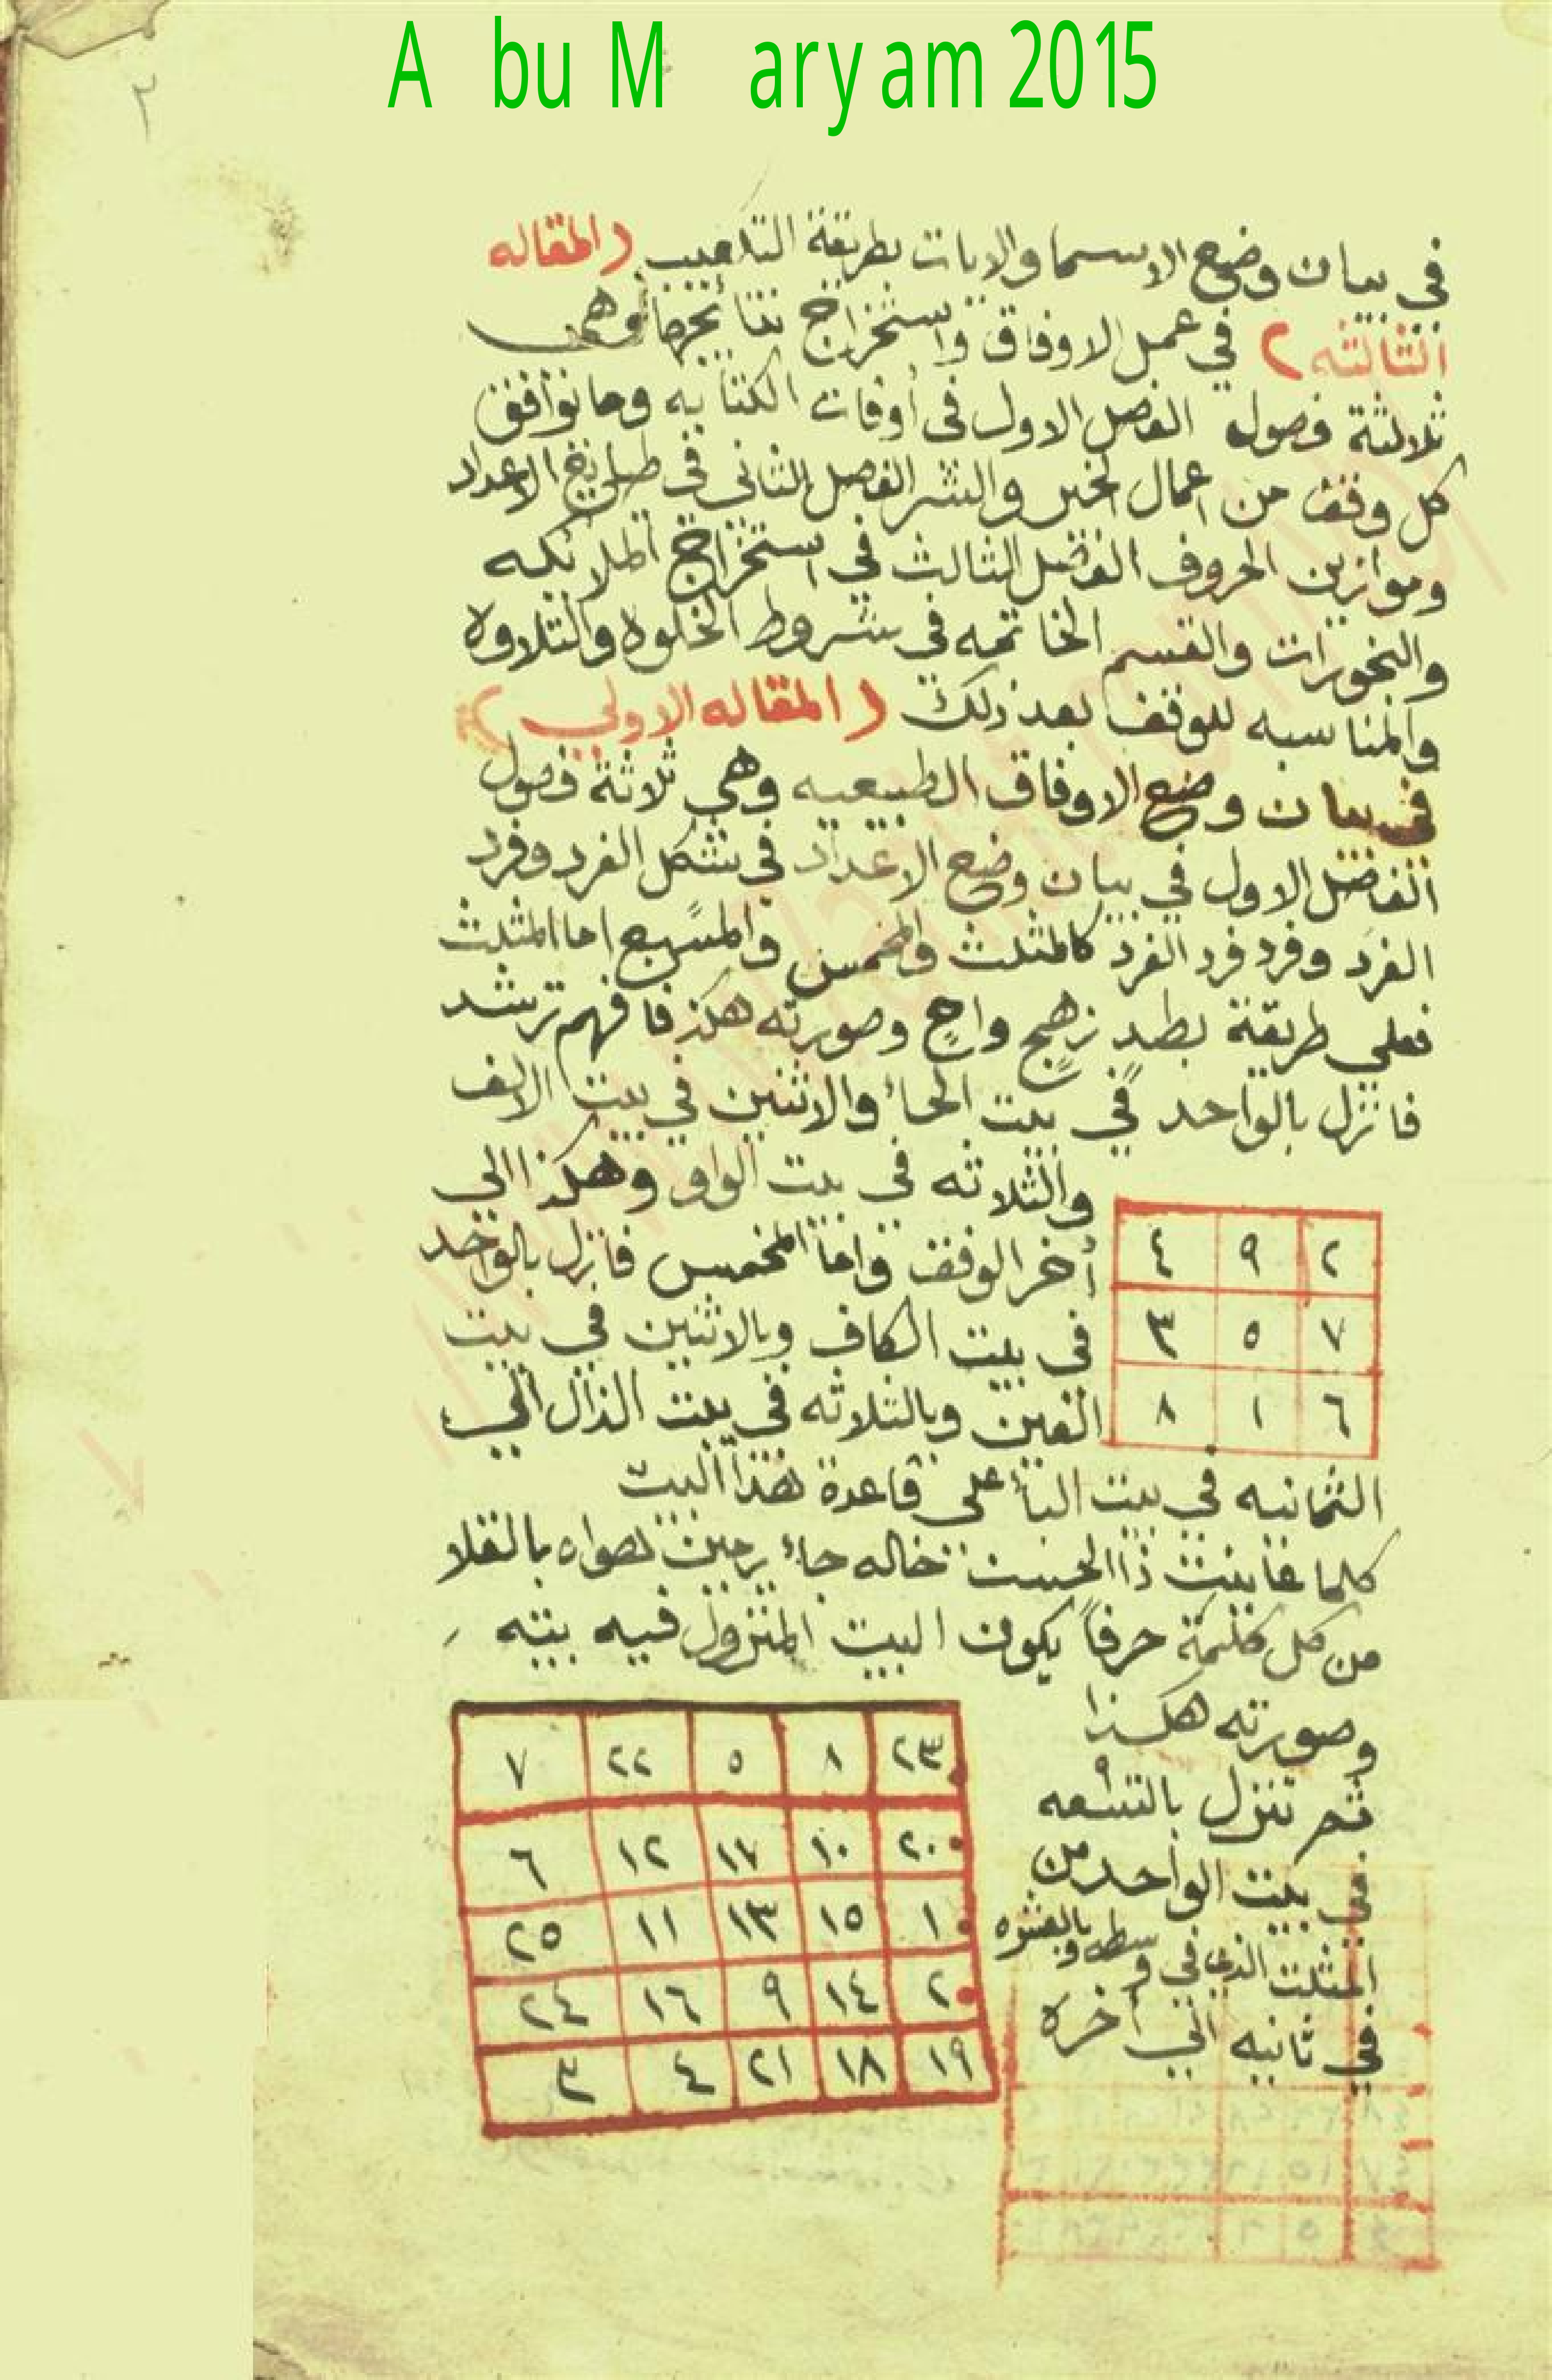 A bu M aryam 2015
٢
في بيان وضع الاسما والايات بطريقة التكعيب (المقاله
الثالثه) في عمل الاوفاق واستخراج نتائجها وهي
ثلاثة فصول الفصل الاول في أوقات الكتابه وما توافق
كل وفق من اعمال الخير والشر الفصل الثاني في طباريخ الاعداد
وموازين الحروف الفصل الثالث في استخراج الملائكه
والبخورات والقسم الخاتمه في شروط الخلوه والتلاوه
والمناسبه للوفق بعد ذلك (المقاله الاولي)
في بيان وضع الاوفاق الطبيعيه وهي ثلاثة فصول
الفصل الاول في بيان وضع الاعداد في شكل الفرد وفرد
الفرد وفرد فرد الفرد كالمثلث والمخمس والمسبع اما المثلث
فعلي طريقة بطد زهج واح وصورته هكذ فافهم ترشد
فانزل بالواحد في بيت الحاء والاثنين في بيت الالف
والثلاثه في بيت الواو وهكذا الي
أخر الوفق واما المخمس فانزل بالواحد
في بيت الكاف وبالاثنين في بيت
الغين وبالثلاثه في بيت الذال الي
٢ ٩ ٤
٧ ٥ ٣
٦ ١ ٨
الثمانيه في بيت الباء علي قاعدة هذا البيت
كلما عاينت ذا الحسن خاله جاء يرحن بالقلا
من كل كلمة حرفاً يكون البيت المنزول فيه بيته
وصورته هكذا
ثم تنزل بالتسعه
في بيت الواحد من
المثلث الذي في وسطه وبالعشره
في ثانيه الي أخره
٢٣ ٨ ٥ ٢٢ ٧
٢٠ ١٠ ١٧ ١٢ ٦
١ ١٥ ١٣ ١١ ٢٥
٢ ١٤ ٩ ١٦ ٢٤
١٩ ١٨ ٢١ ٤ ٣